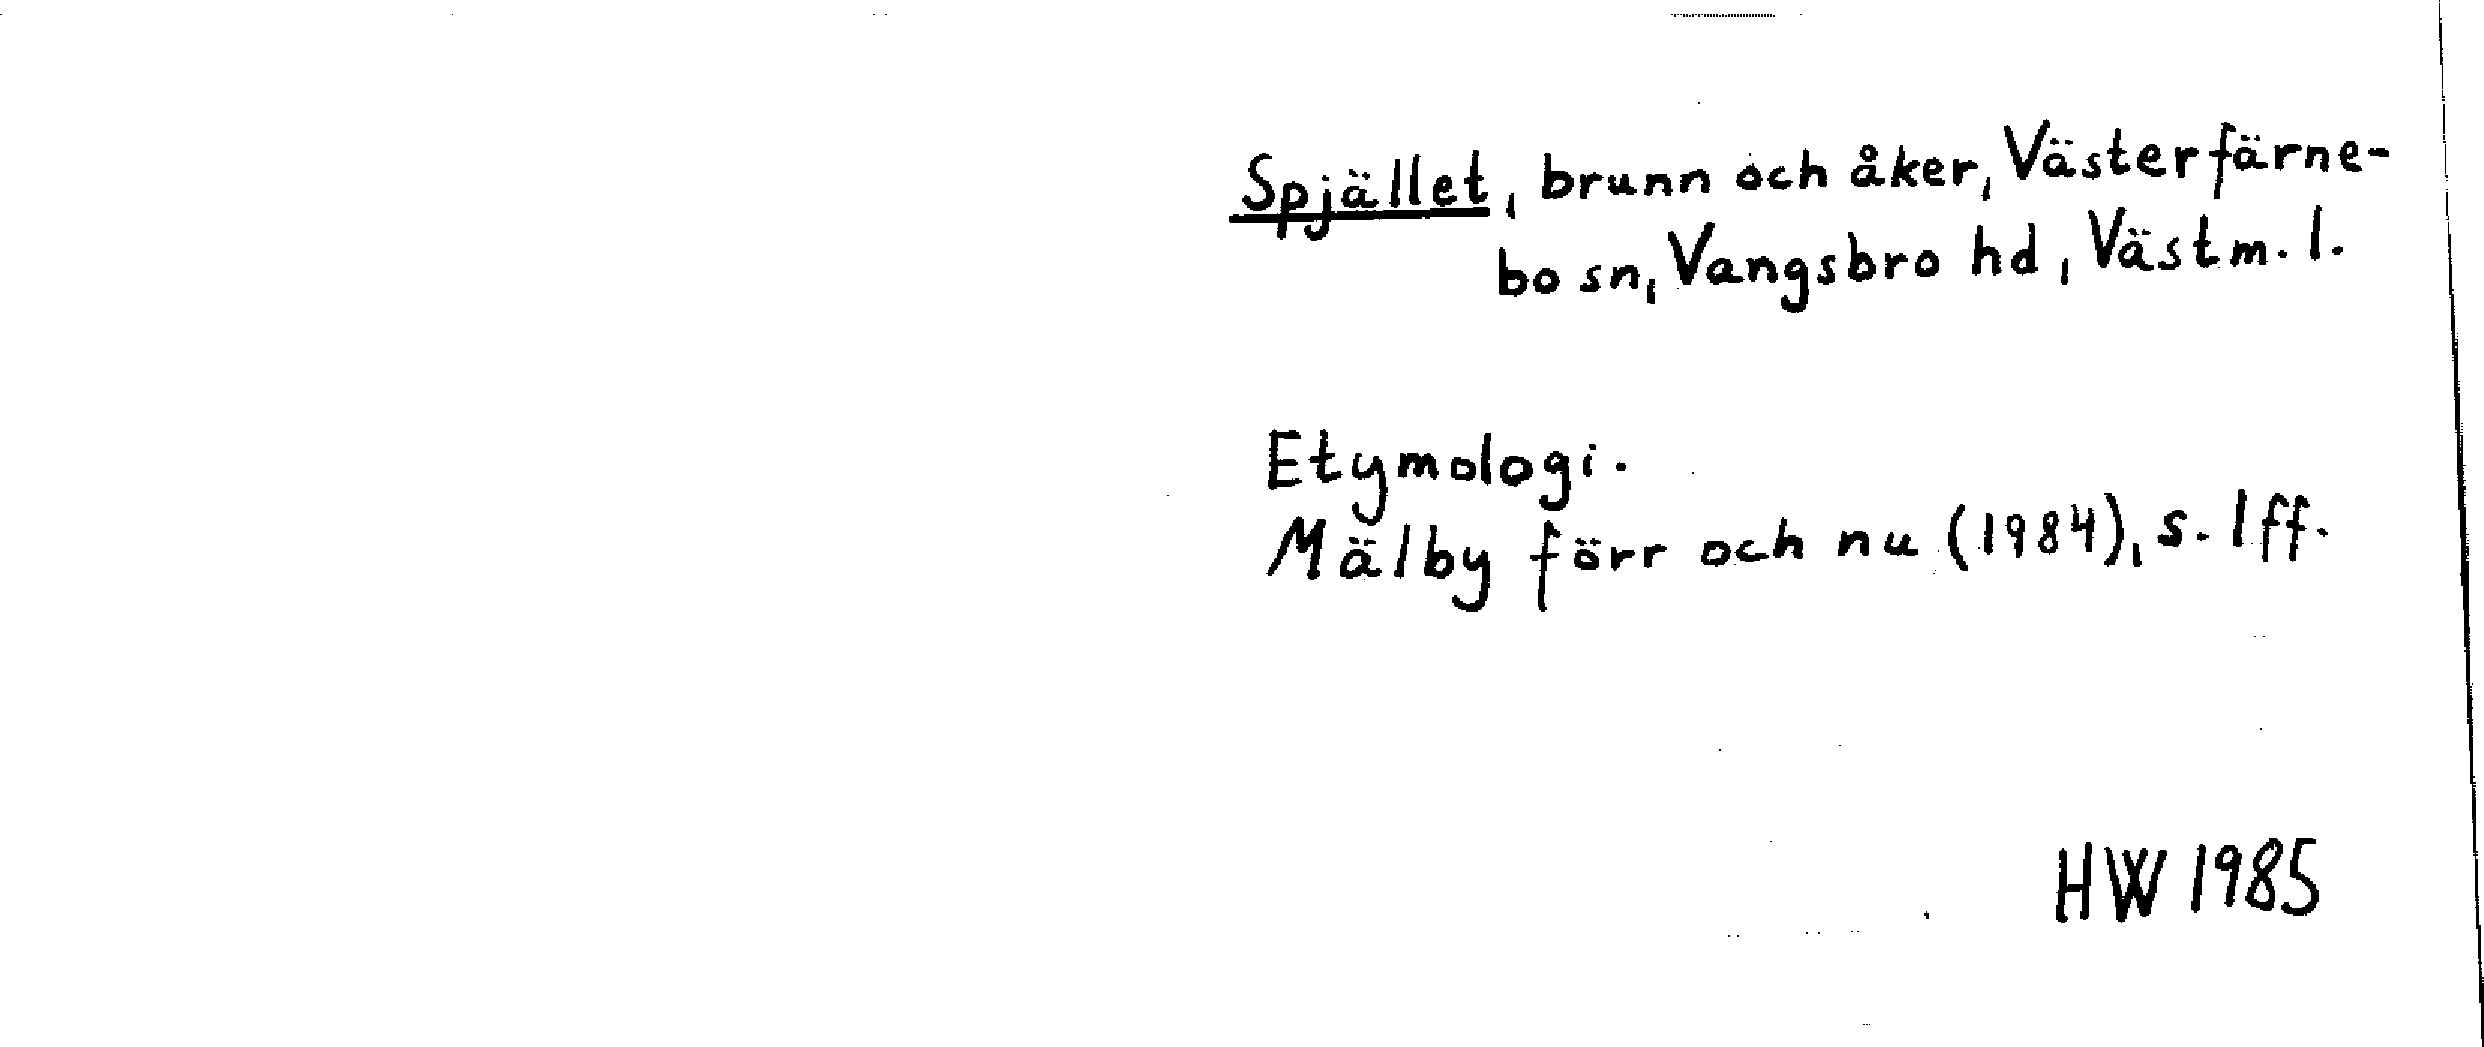 Spjället, brunn och åker, Västerfärne-
bo sn, Vangsbro hd, Västm. l.
Etymologi.
Mälby förr och nu (1984), s. 1 ff.
HW 1985